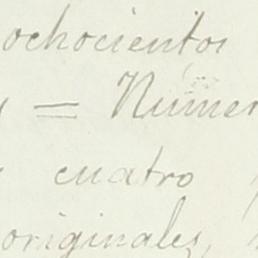 ochocientos
= Numer
cuatro
originales,